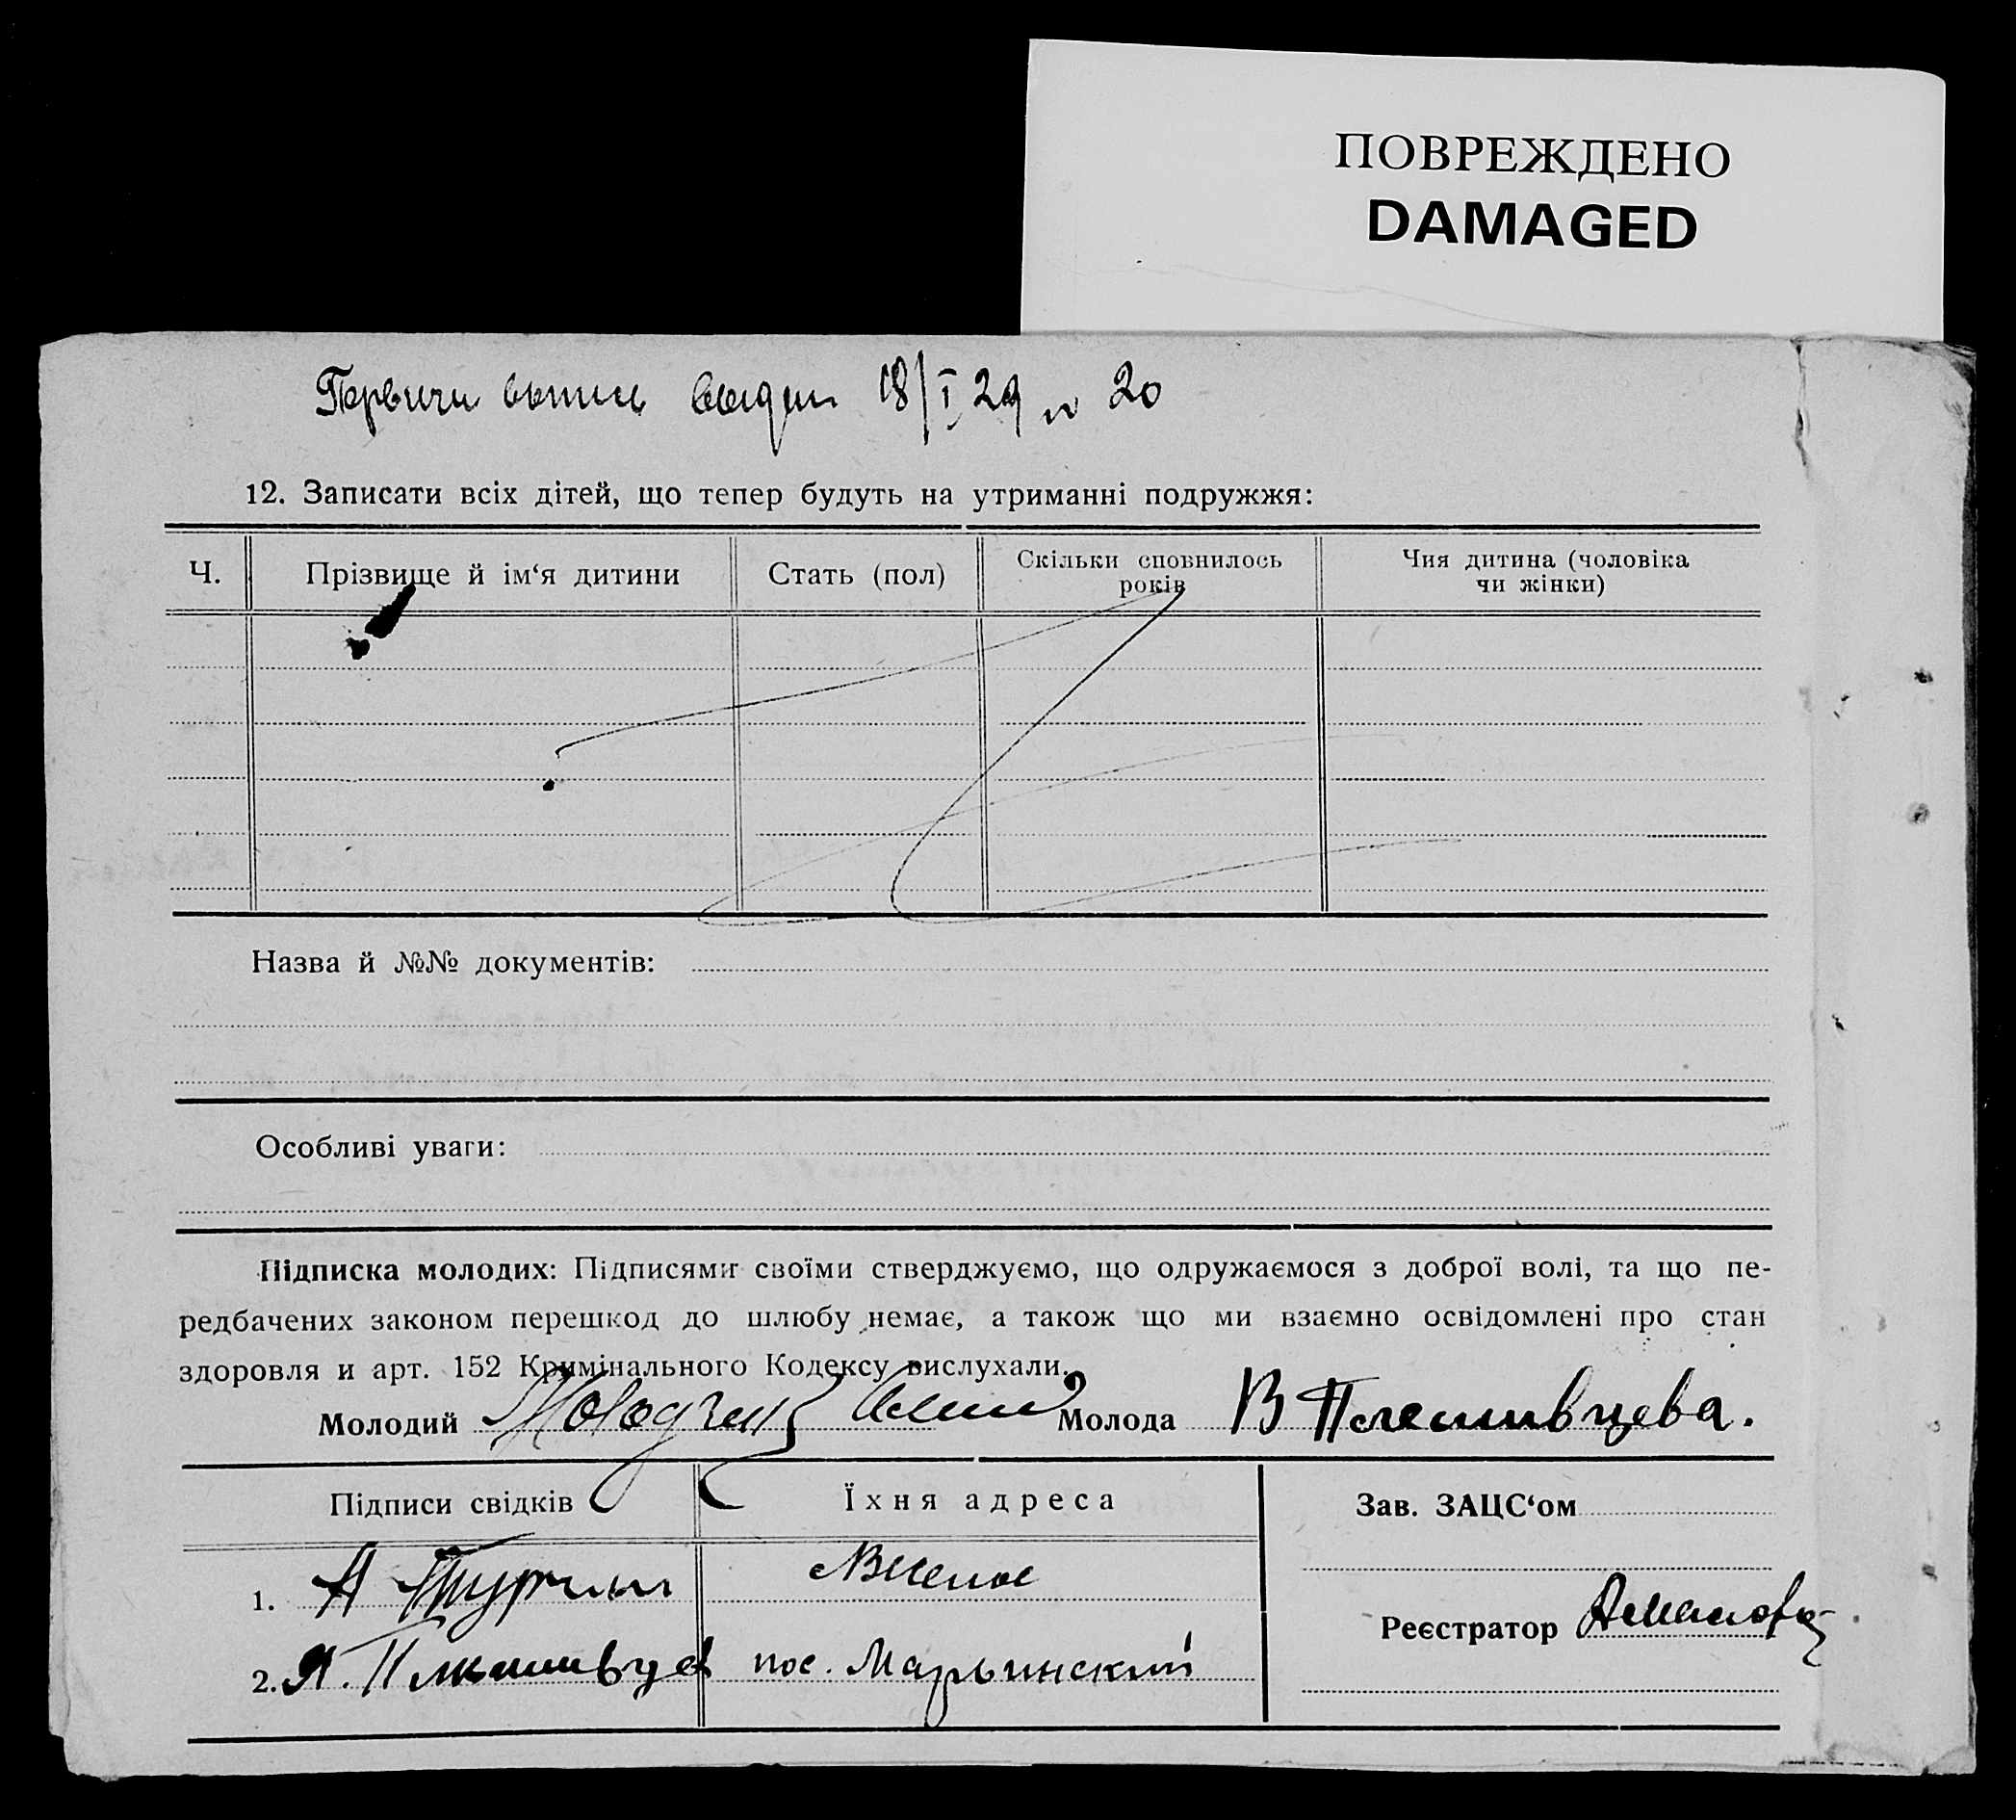 ПОВРЕЖДЕНО
DAMAGED
18/I 29 20
12. Записати всіх дітей, що тепер будуть на утриманні подружжя:
Ч. Прізвище й ім‘я дитини Стать (пол) Скільки сповнилось років Чия дитина (чоловіка чи жінки)
Назва й №№ документів:
Особливі уваги:
Підписка молодих: Підписями своїми стверджуємо, що одружаємося з доброї волі, та що пе-
редбачених законом перешкод до шлюбу немає, а також що ми взаємно освідомлені про стан
здоровля и арт. 152 Кримінального Кодексу вислухали.
Молодий Молода В
Підписи свідків Їхня адреса Зав. ЗАЦС‘ом
1. А
Реєстратор
2. пос. Марьинский